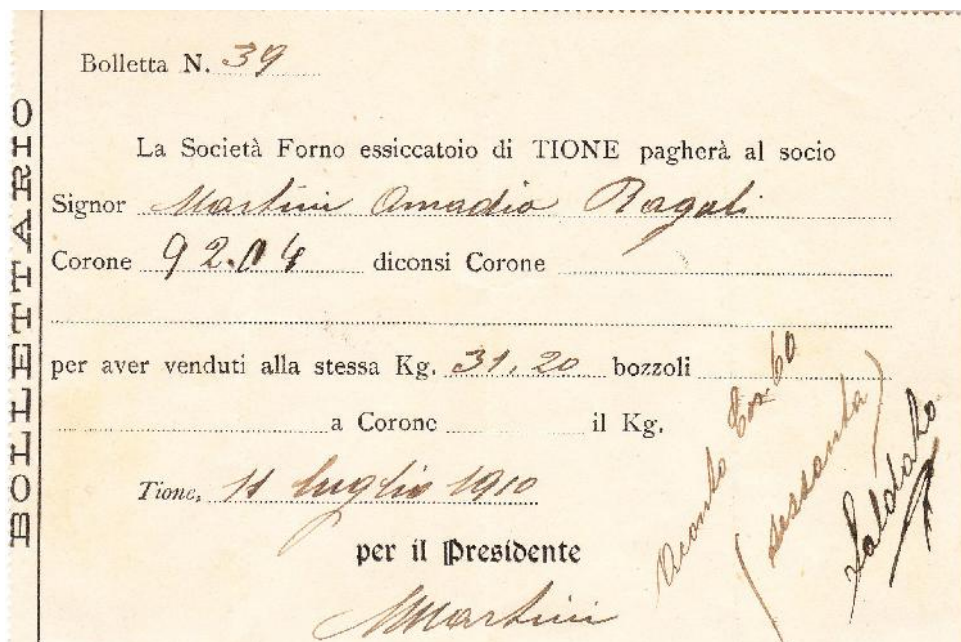 BOLLETTARIO
Bolletta N. 39
La Società Forno essiccatoio di TIONE pagherà al socio
Signor Martini Amadio Ragoli
Corone 92.04 diconsi Corone
per aver venduti alla stessa Kg. 31,20 bozzoli
a Corone il Kg.
Tione, 11 luglio 1910
per il Presidente
Martini
Aconto Cor. 60
(sessanta)
Saldato